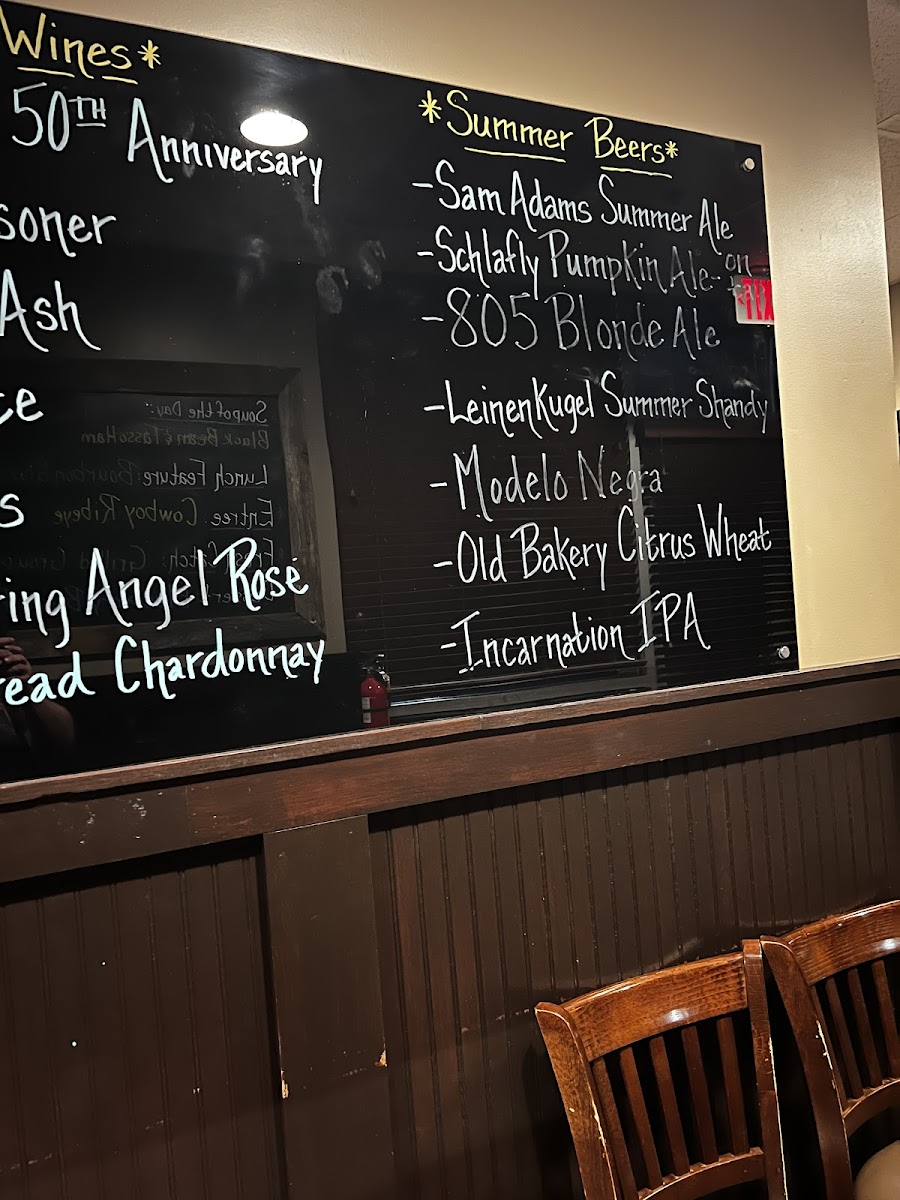 Wines*
50TH Anniversary
soner
Ash
ce
s
ring Angel Rosé
read Chardonnay
*Summer Beers*
-Sam Adams Summer Ale
-Schlafly Pumpkin Ale- on
-805 Blonde Ale
-Leinenkugel Summer Shandy
-Modelo Negra
-Old Bakery Citrus Wheat
-Incarnation IPA
Soup of the Day:
Black Bean & Tasso Ham
Lunch Feature: Bourbon
Entree: Cowboy Ribeye
Catch: Grilled